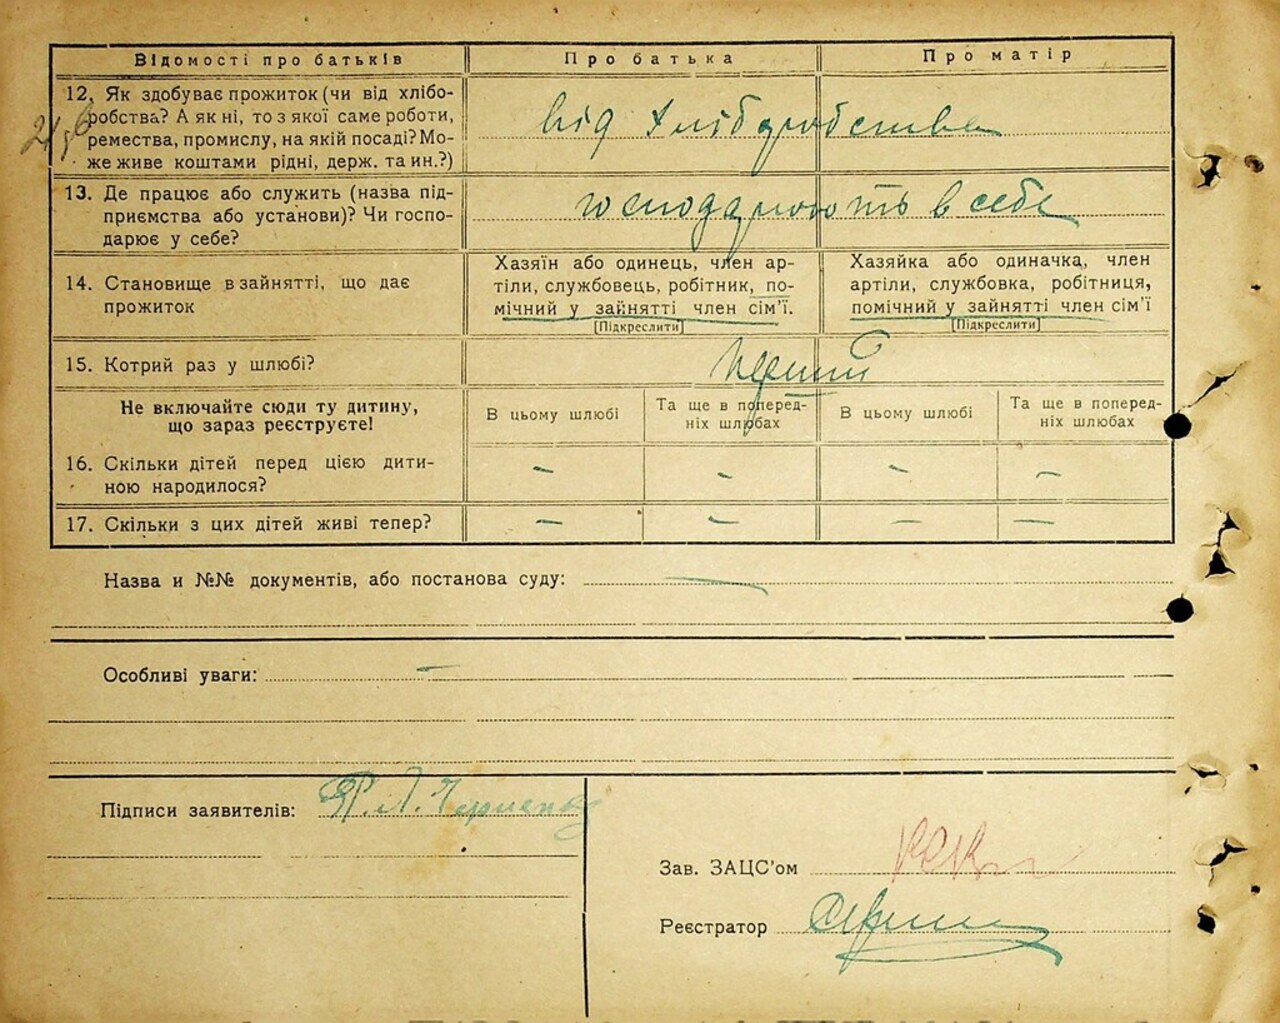 Відомості про батьків	Про батька	Про матір
12. Як здобуває прожиток (чи від хлібо-
робства? А як ні, то з якої саме роботи,
ремества, промислу, на якій посаді? Мо-
же живе коштами рідні, держ. та ин.?)
від хліборобства
13. Де працює або служить (назва під-
приємства або установи)? Чи госпо-
дарює у себе?
господарюють в себе
14. Становище в зайнятті, що дає
прожиток
Хазяїн або одинець, член ар-
тіли, службовець, робітник, по-
мічний у зайнятті член сім'ї.
[Підкреслити]
Хазяйка або одиначка, член
артіли, службовка, робітниця,
помічний у зайнятті член сім'ї
[Підкреслити]
15. Котрий раз у шлюбі?
перший
Не включайте сюди ту дитину,
що зараз реєструєте!
В цьому шлюбі
Та ще в поперед-
ніх шлюбах
В цьому шлюбі
Та ще в поперед-
ніх шлюбах
16. Скільки дітей перед цією дити-
ною народилося?
– – – –
17. Скільки з цих дітей живі тепер?
– – – –
Назва и №№ документів, або постанова суду: —
Особливі уваги: –
Підписи заявителів:
Зав. ЗАЦС'ом
Реєстратор